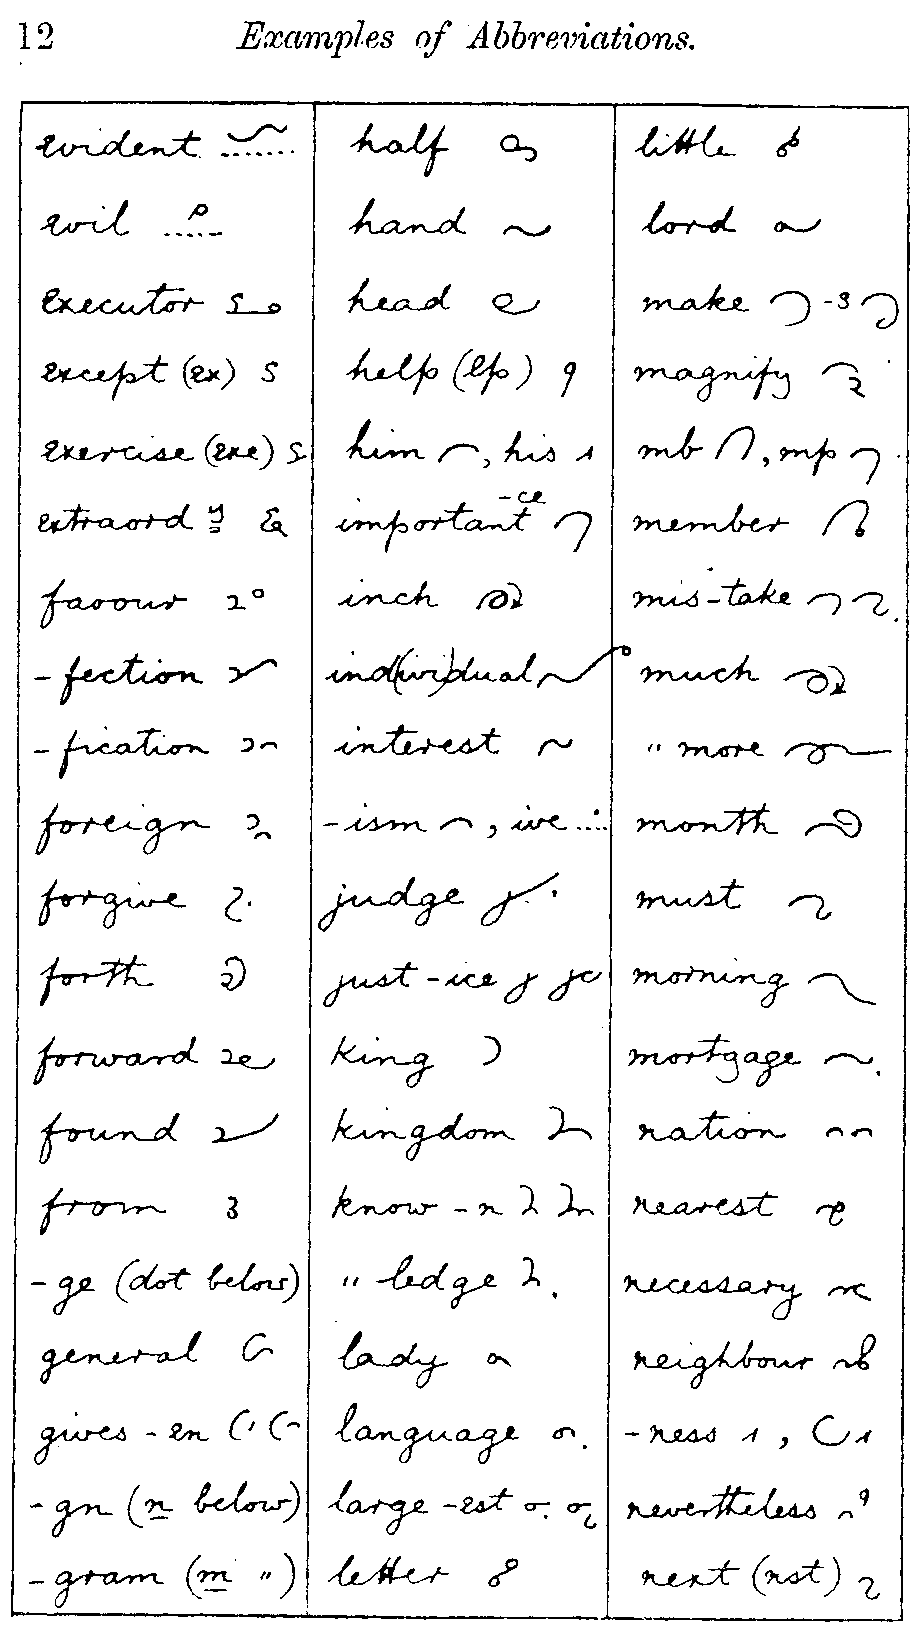 12 Examples of Abbreviations.
evident
evil
executor
except (ex)
exercise (exe)
extraordy
favour
-fection
-fication
foreign
forgive
forth
forward
found
from
-ge (dot below)
general
gives -en
-gn (n below)
-gram (m ")
half
hand
head
help (lp)
him , his
important -ce
inch
ind(ivi)dual
interest
-ism , ive
judge
just -ice
king
kingdom
know -n
" ledge
lady
language
large -est
letter
little
lord
make -s
magnify
mb , mp
member
mis-take
much
" more
month
must
morning
mortgage
nation
nearest
necessary
neighbour
-ness ,
nevertheless
next (nst)